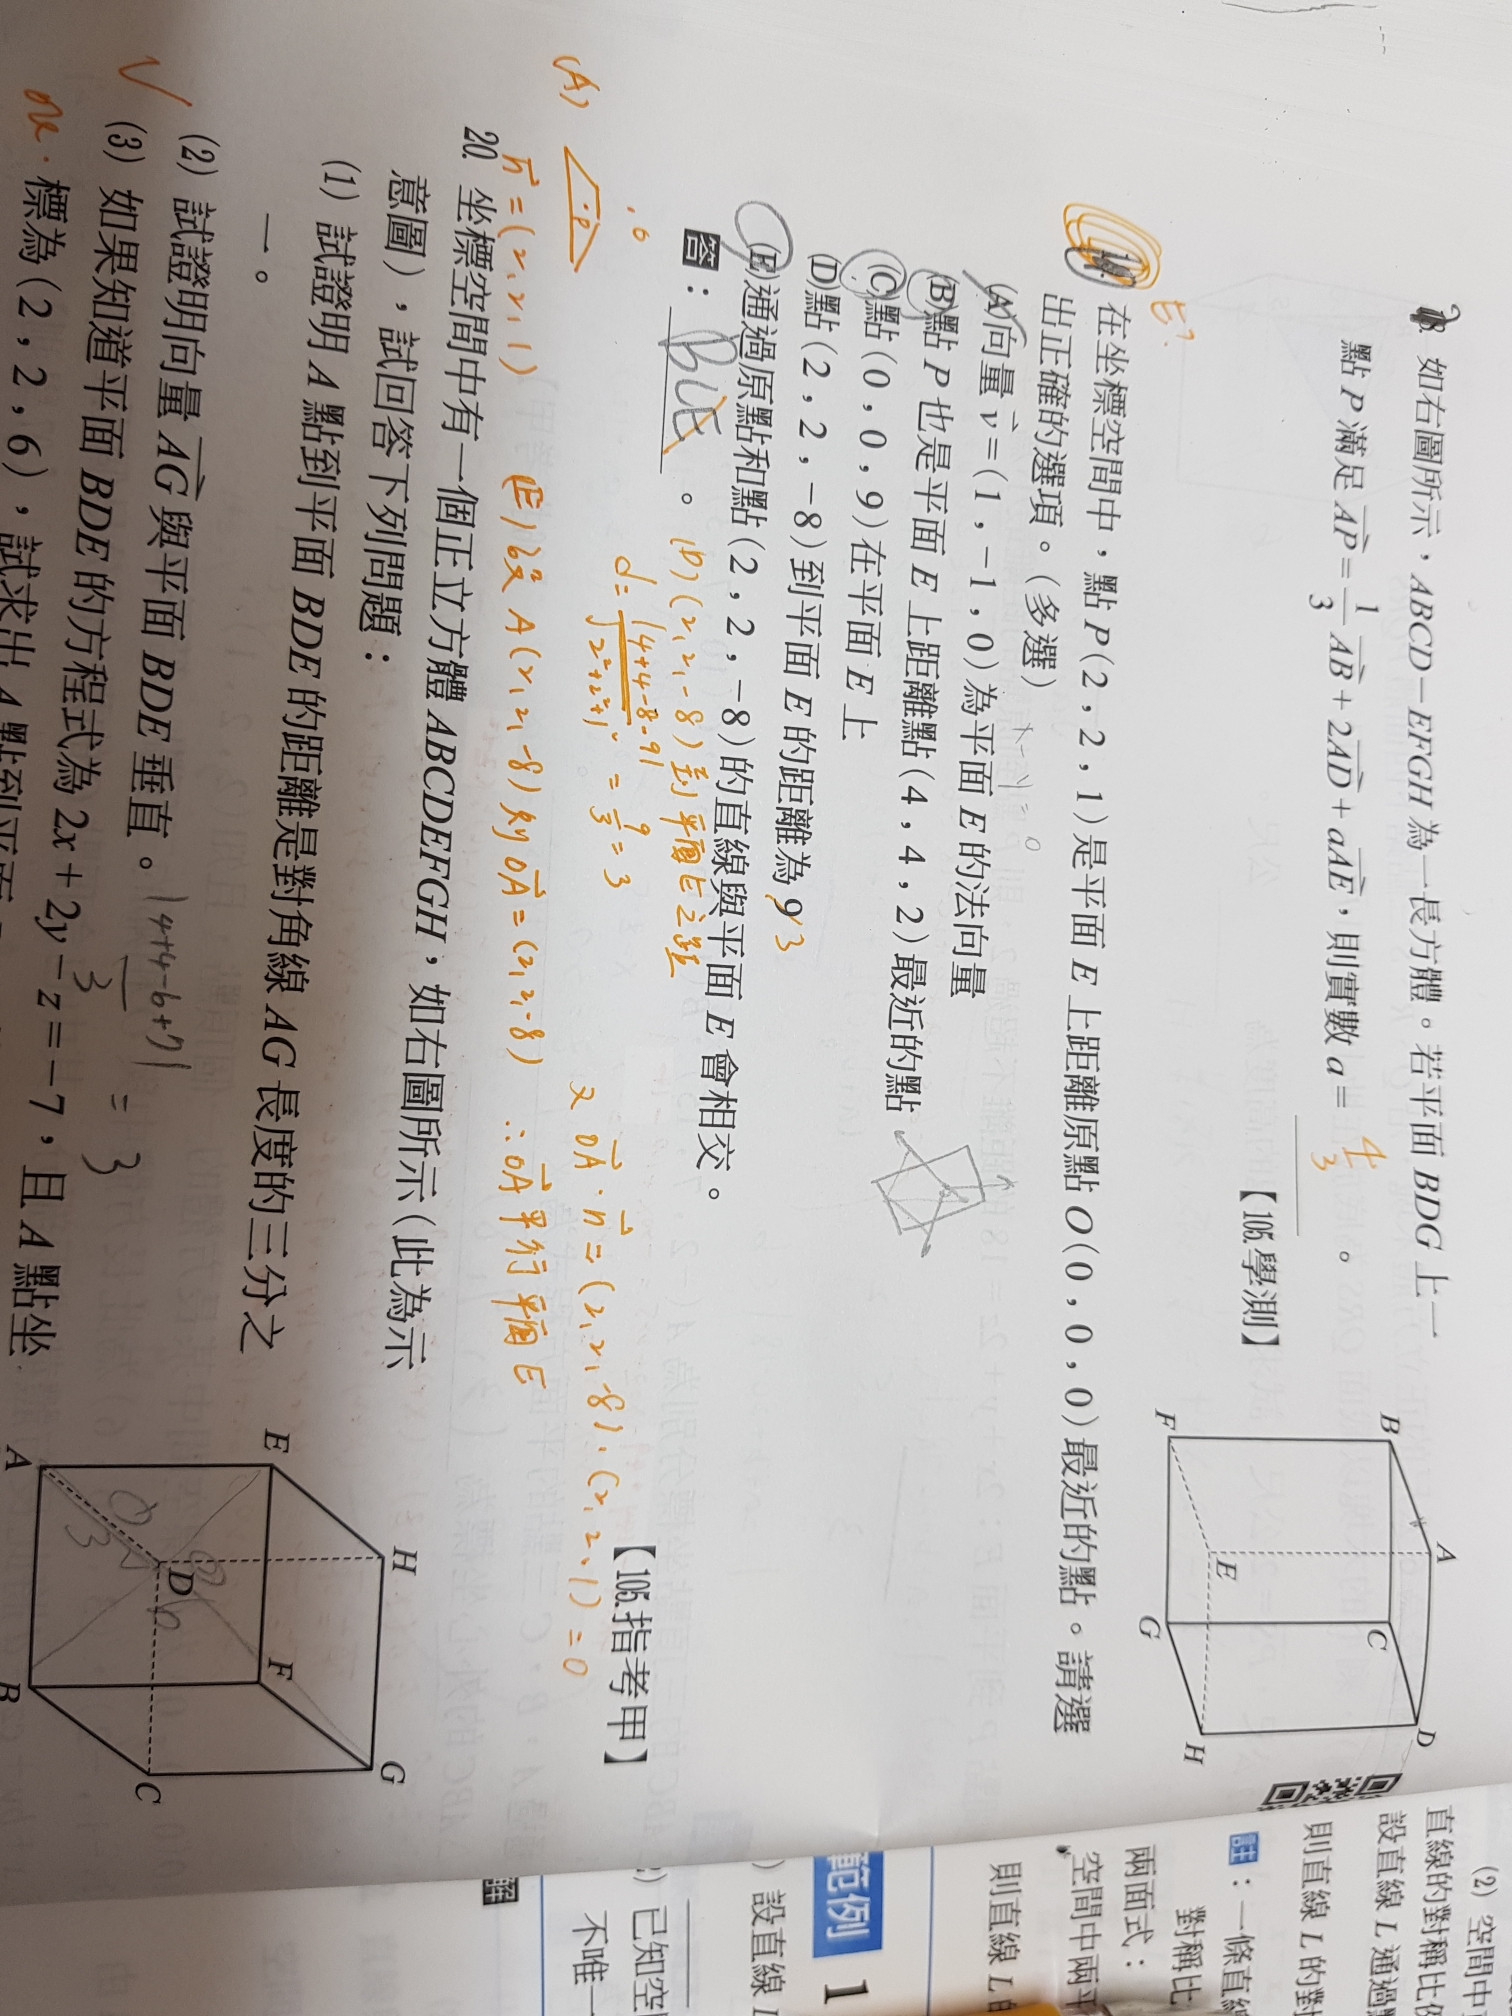 如右圖所示，ABCD－EFGH 為一長方體。若平面 BDG 上一
點 P 滿足 AP = 1/3 AB + 2AD + aAE，則實數 a = 4/3 。
【105.學測】
B A C D F E G H
E?
在坐標空間中，點 P(2，2，1)是平面 E 上距離原點 O(0，0，0)最近的點。請選
出正確的選項。(多選)
(A)向量 v=(1，-1，0)為平面 E 的法向量
(B)點 P 也是平面 E 上距離點(4，4，2)最近的點
(C)點(0，0，9)在平面 E 上
(D)點(2，2，-8)到平面 E 的距離為 9 3
(E)通過原點和點(2，2，-8)的直線與平面 E 會相交。
答：BCE 。
【105.指考甲】
(D) (2,2,-8)到平面E之距
d = |4+4-8-9| / √2²+2²+1² = 9/3 = 3
(A)
n = (2,2,1)
(E) 設 A(2,2,-8) 則 OA = (2,2,-8)
又 OA · n = (2,2,-8)·(2,2,1) = 0
∴ OA 平行平面 E
20. 坐標空間中有一個正立方體 ABCDEFGH，如右圖所示(此為示
意圖)，試回答下列問題：
(1) 試證明 A 點到平面 BDE 的距離是對角線 AG 長度的三分之
一。
(2) 試證明向量 AG 與平面 BDE 垂直。
|4+4-6+7| / 3 = 3
(3) 如果知道平面 BDE 的方程式為 2x + 2y - z = -7，且 A 點坐
標為(2，2，6)，試求出 A 點到平面
E H D F G A B C
(2) 空間中
直線的對稱比
設直線 L 通過
則直線 L 的對
註：一條直線
對稱比
兩面式：
空間中兩平
則直線 L
範例 1
設直線
已知空
不唯一
解